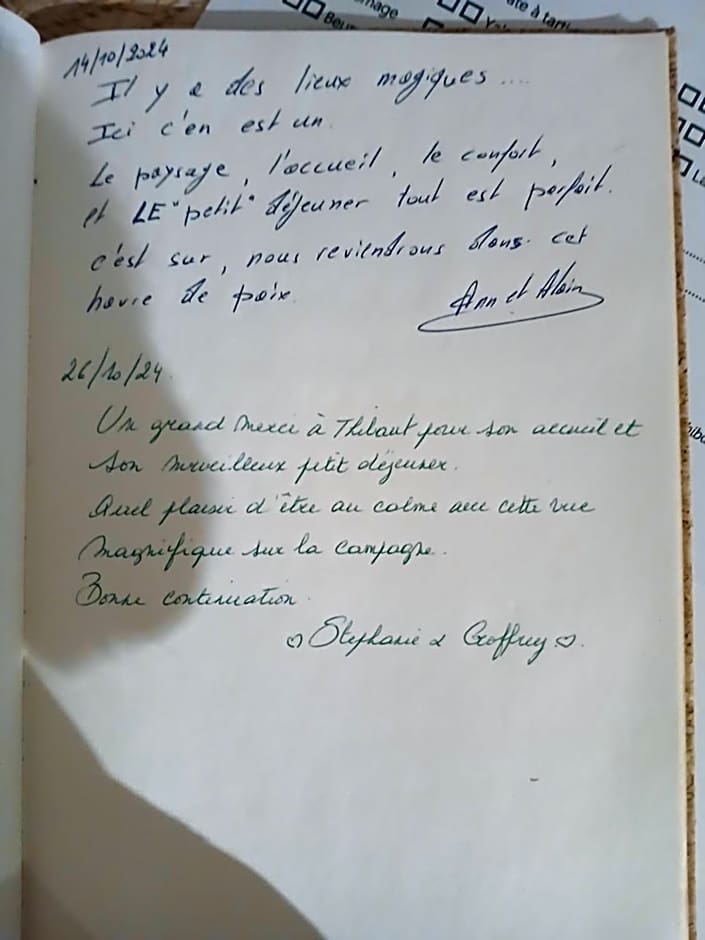 mage
ate à tarti
Beur
14/10/2024
Il y a des lieux magiques....
Ici c'en est un.
Le paysage, l'accueil, le confort,
et LE "petit" déjeuner tout est parfait.
c'est sur, nous reviendrons dans cet
havre de paix.
Ann et Alain
26/10/24.
Un grand merci à Thibaut pour son accueil et
son merveilleux petit déjeuner.
Quel plaisir d'être au calme avec cette vue
magnifique sur la campagne.
Bonne continuation.
♡ Stephanie & Geoffrey ♡.